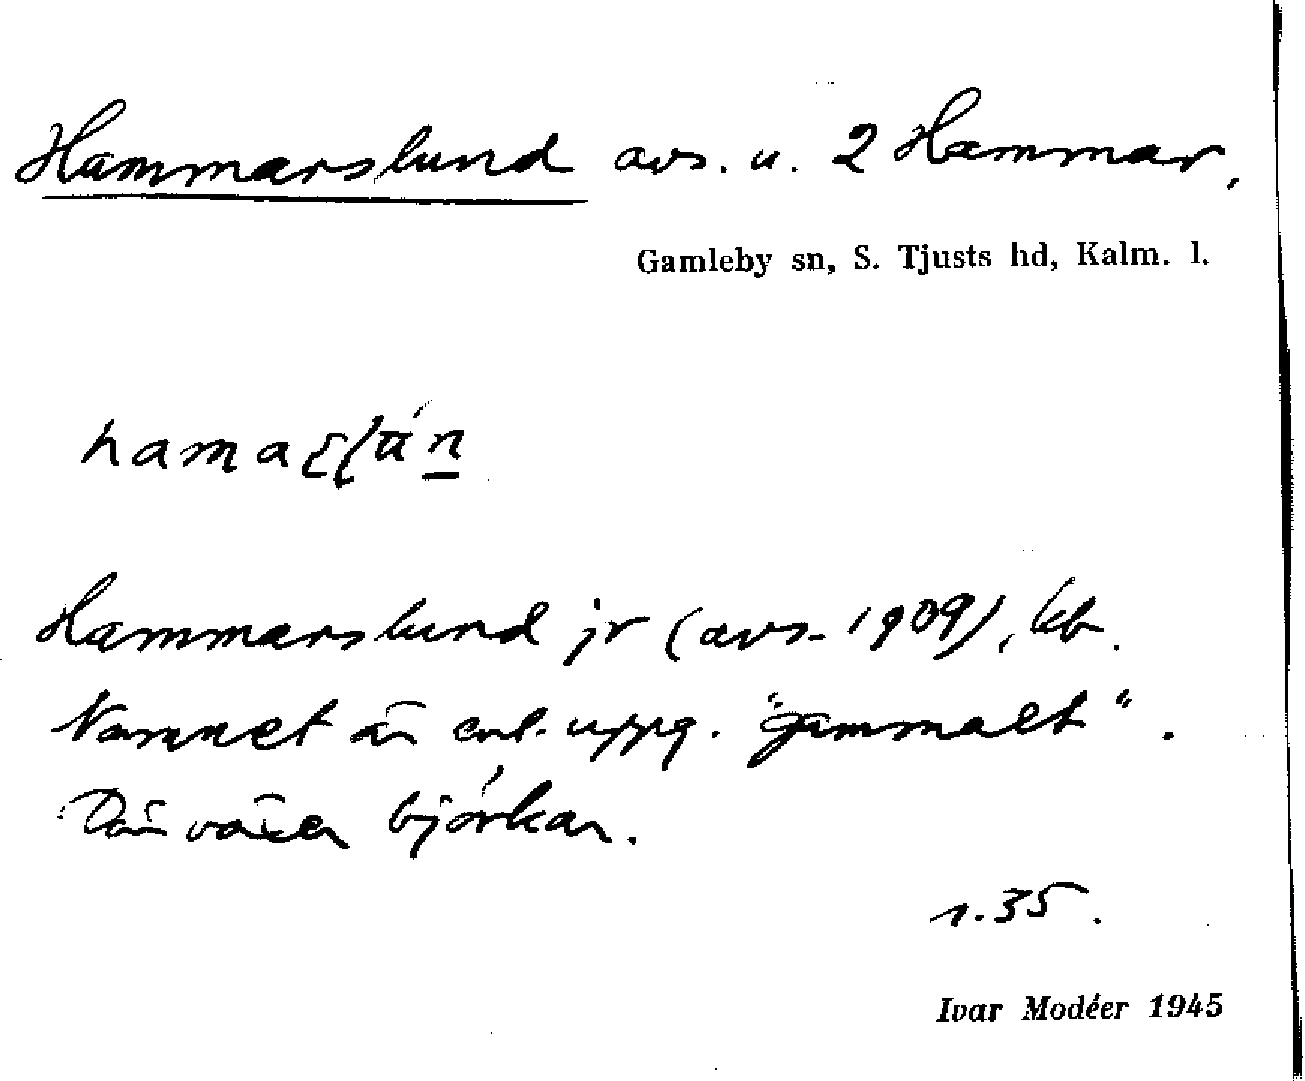 Hammarslund avs. u. 2 Hammar,
Gamleby sn, S. Tjusts hd, Kalm. l.
Hammarslund jr (avs. 1909), kb.
Namnet är enl. uppg. "gammalt".
Där växer björkar.
s. 35.
Ivar Modéer 1945